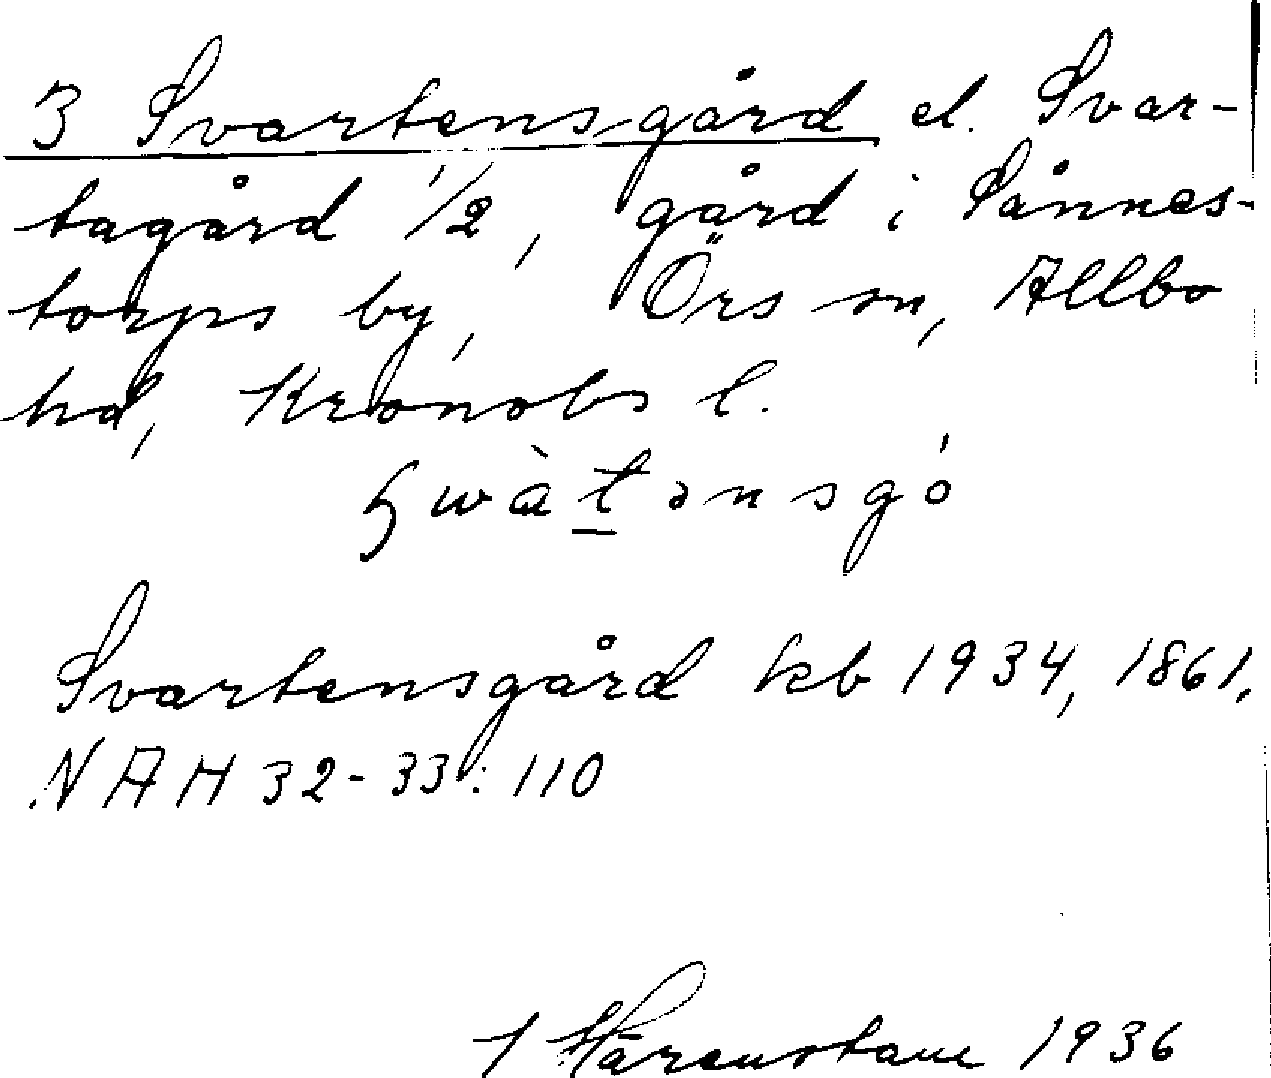 3 Svartensgård el. Svar-
tagård 1/2, gård i Sånnes-
torps by, Örs sn, Allbo
hd, Kronobs l.
Svartensgård kb 1934, 1861,
NAH 32-33: 110
1936